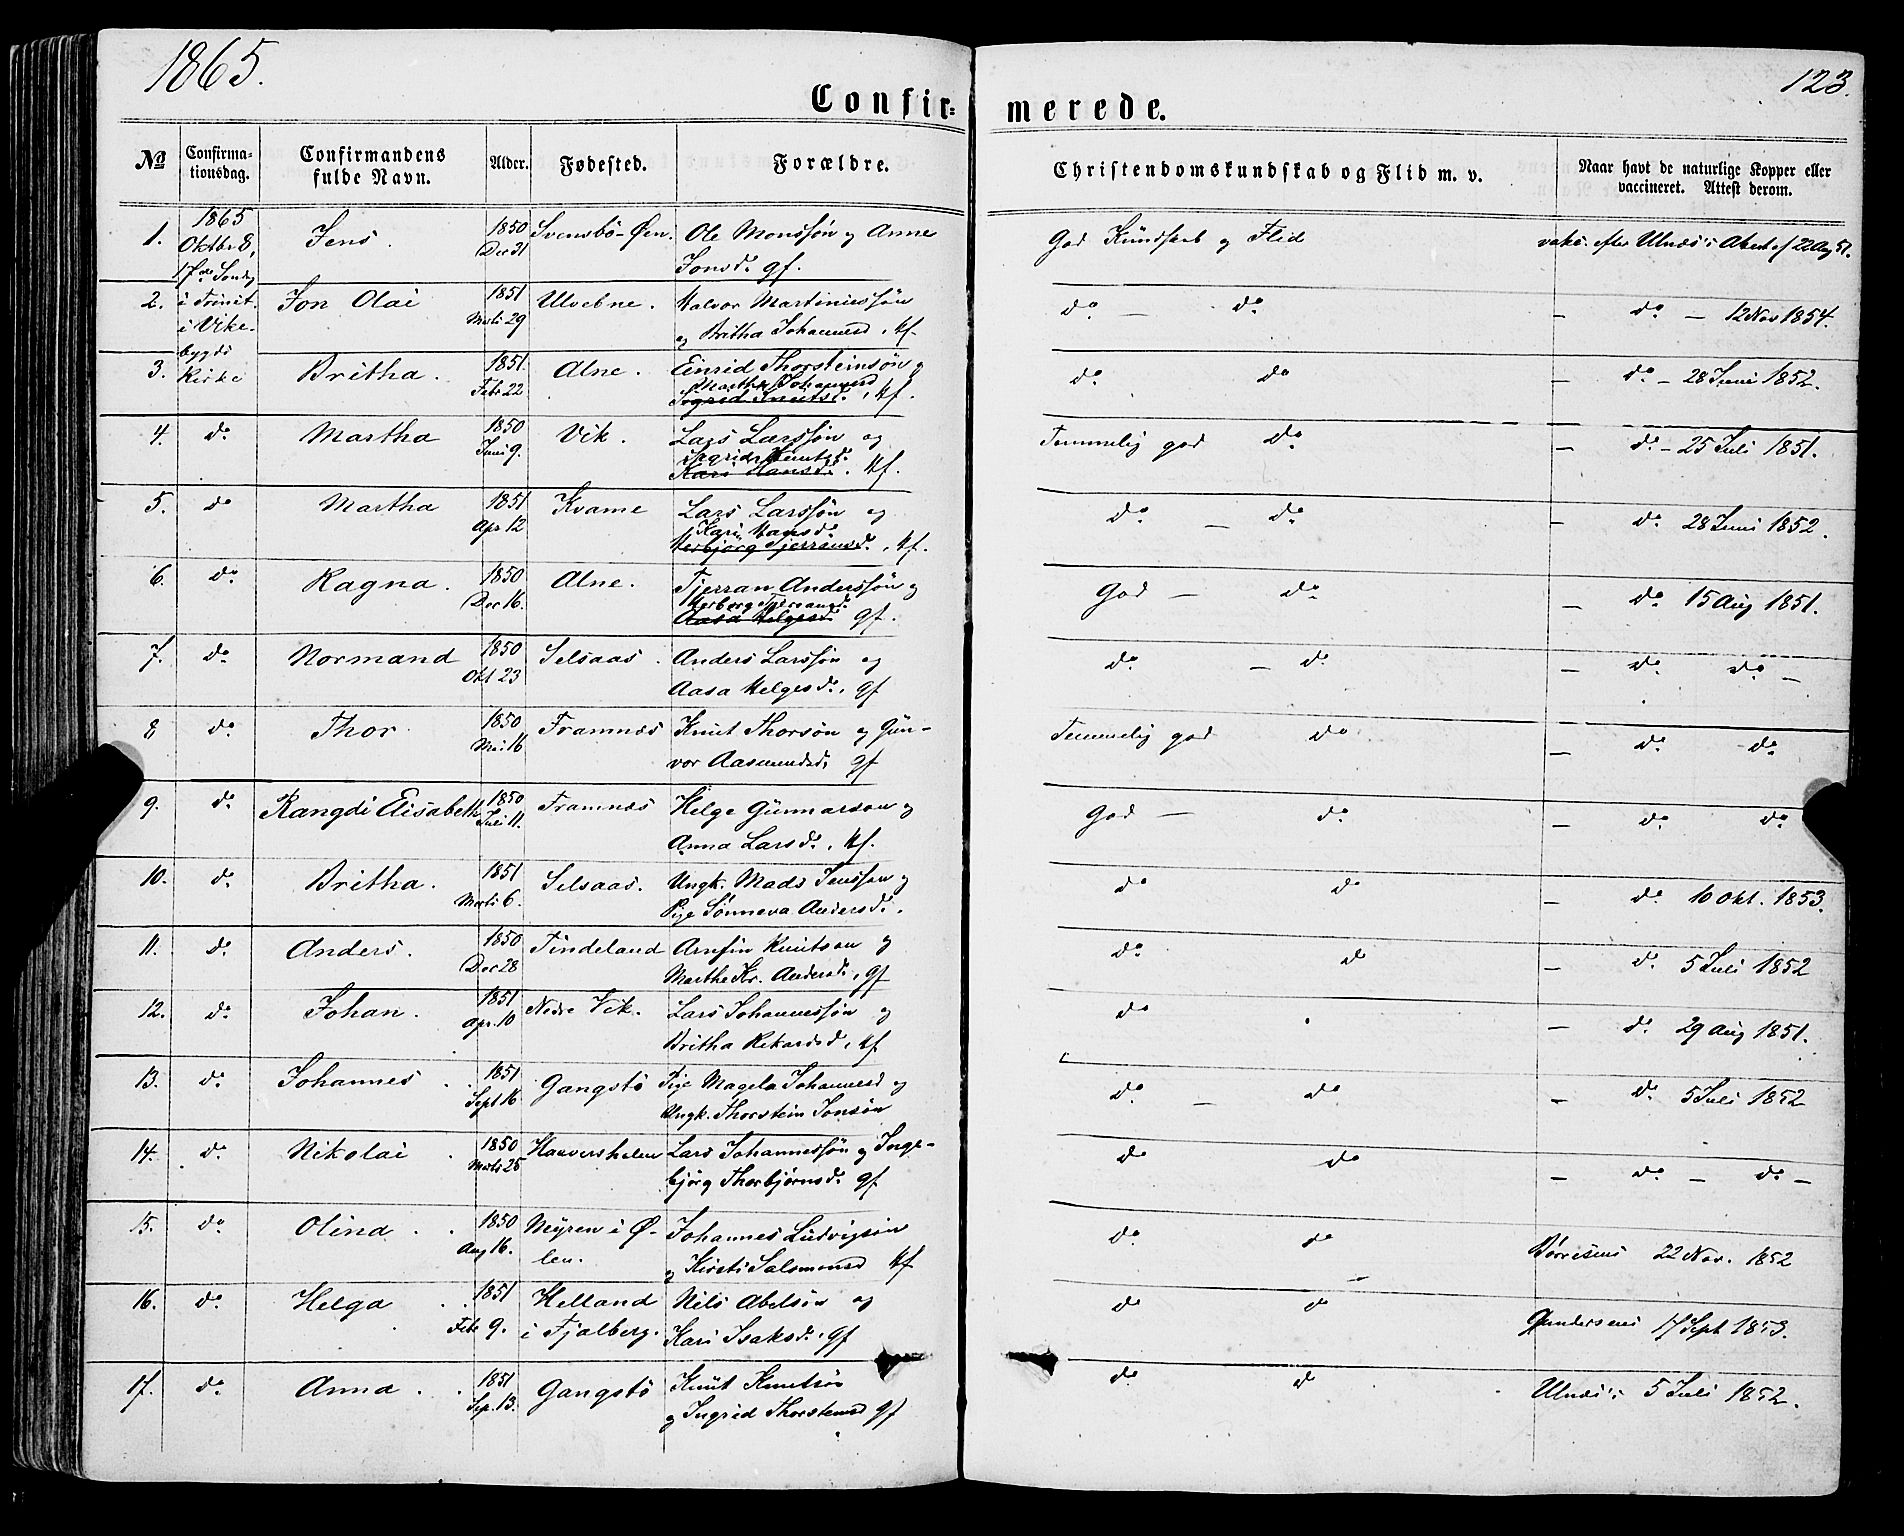 1865.
123.
Confir= merede.
No
Confirma-
tionsdag.
Confirmandens
fulde Navn.
Alder.
Fødested.
Forældre.
Christendomskundskab og Flid m. v.
Naar havt de naturlige Kopper eller
vaccineret. Attest derom.
1. 1865 Oktbr 8, 17de Sondg Jens. 1850 Dec 31 Svensbö-Öen. Ole Monssön og Anne
Jonsd. gf. God Kundskab og Flid vakc. efter Ulnæs's Atest af 22 Aug 51.
2. i Trinit. i Vike- Jon Olai 1851 Marts 29 Ulvebne. Halvor Martiniussön
og Britha Johannesd. Kf. do — do — do — 12 Nov 1854.
3. bygds Kirke Britha. 1851 Febr 22 Alne. Einrid Thorsteinsön og
Martha Johannesd
Sigrid Knutsd. Kf. do do do — 28 Juni 1852.
4. do Martha 1850 Juni 9. Vik. Lars Larssön og
Ingrid Knutsd.
Kari Hansd. Kf. Temmelig god do — do — 25 Juli 1851.
5. do Martha 1851 Apr 12 Kvame Lars Larssön og
Kari Hansd.
Herbjörg Tjerransd. Kf. do — do — do 28 Juni 1852.
6. do Ragna. 1850 Dec 16. Alne. Tjerran Anderssön og
Herborg Tjerransd.
Aasa Helgesd. gf. God — do — do 15 Aug 1851.
7. do Normand 1850 Okt 23 Selsaas. Anders Larssön og
Aasa Helgesd. gf do — do — do do —
8 do Thor 1850 Mai 16 Framnæs Knut Thorsön og Gun-
vor Aasmundsd. gf Temmelig god do — do do
9. do Rangdi Elisabeth 1850 Juli 11. Framnæs Helge Gunnarson og
Anna Larsd. Kf. God — do — do do
10. do Britha. 1851 Marts 6. Selsaas. Ungk. Mads Jensson og
Pige Sönneva Andersd. do do — do 10 Okt. 1853.
11. do Anders. 1850 Dec 28 Tindeland Arnfin Knutson og
Marthe Kr. Andersd. gf do do — do 5 Juli 1852
12. do Johan. 1851 Apr. 10 Nedre Vik. Lars Johannessön og
Britha Rikardsd. Kf do — do 29 Aug 1851.
13. do Johannes. 1851 Sept 16 Gangstö Pige Magela Johannesd og
Ungk. Thorstein Jonsön do — do — do 5 Juli 1852
14. do Nikolai. 1850 Marts 25 Lars Johannessön og Inge-
björg Thorbjörnsd. gf do do — do — do —
15. do Olina. 1850 Aug 16. Myren i Ö-
len. Johannes Ludvigsön
og Kirsti Salomonsd Kf do do Börresens 22 Nov. 1852
16. do Helga 1851 Febr 9. Helland
i Fjalberg. Nils Abelsön og
Kari Isaksd. gf do do Gundersens 17 Sept 1853.
17. do Anna. 1851 Sep. 13. Gangstö Knut Knutsön
og Ingrid Thorsteinsd gf do do Ulnæs's 5 Juli 1852.